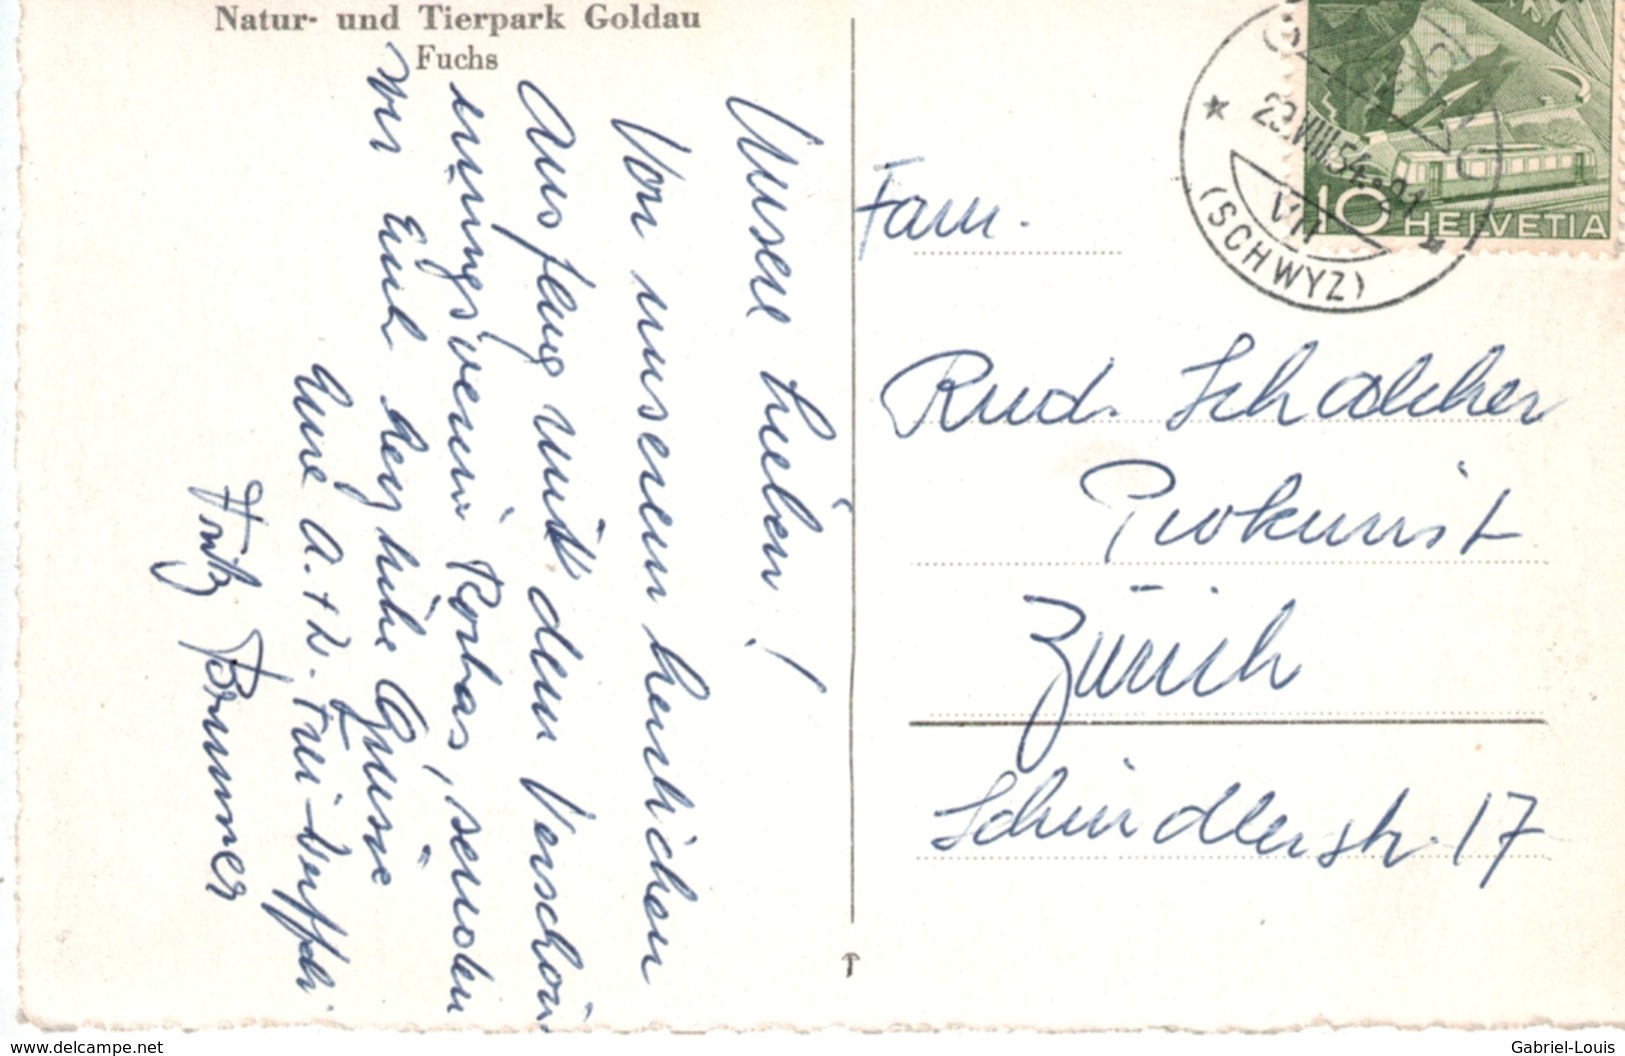 Natur- und Tierpark Goldau
Fuchs
Unsere Lieben!
Von unserem herrlichen
Ausflug mit dem Verschöne-
rungsverein Rorbas, senden
wir Euch herzliche Grüsse
Eure A. + R. Frei-
Fritz Brunner
23.VIII.54-21
VII
(SCHWYZ)
10 HELVETIA
Fam.
Rud. Schalcher
Prokurist
Zürich
Schindlerstr. 17
www.delcampe.net
Gabriel-Louis